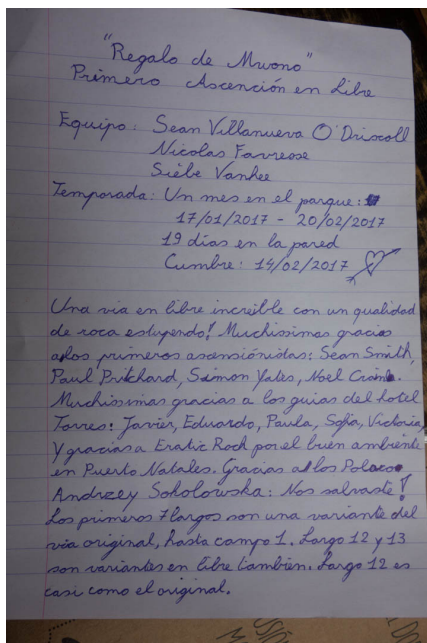 "Regalo de Mwono"
Primero Ascención en Libre
Equipo: Sean Villanueva O'Driscoll
Nicolas Favresse
Siebe Vanhee
Temporada: Un mes en el parque:
17/01/2017 - 20/02/2017
19 días en la pared
Cumbre: 14/02/2017
Una via en libre increible con un qualidad
de roca estupendo! Muchissimas gracias
a los primeros ascensiónistas: Sean Smith,
Paul Pritchard, Simon Yates, Noel Craine.
Muchissimas gracias a los guias del hotel
Torres: Javier, Eduardo, Paula, Sofia, Victoria,
Y gracias a Eratic Rock por el buen ambiente
en Puerto Natales. Gracias a los Polaco
Andrzey Sokolowska: Nos salvaste!
Los primeros 7 largos son una variante del
via original, hasta campo 1. Largo 12 y 13
son variantes en libre tambien. Largo 12 es
casi como el original.